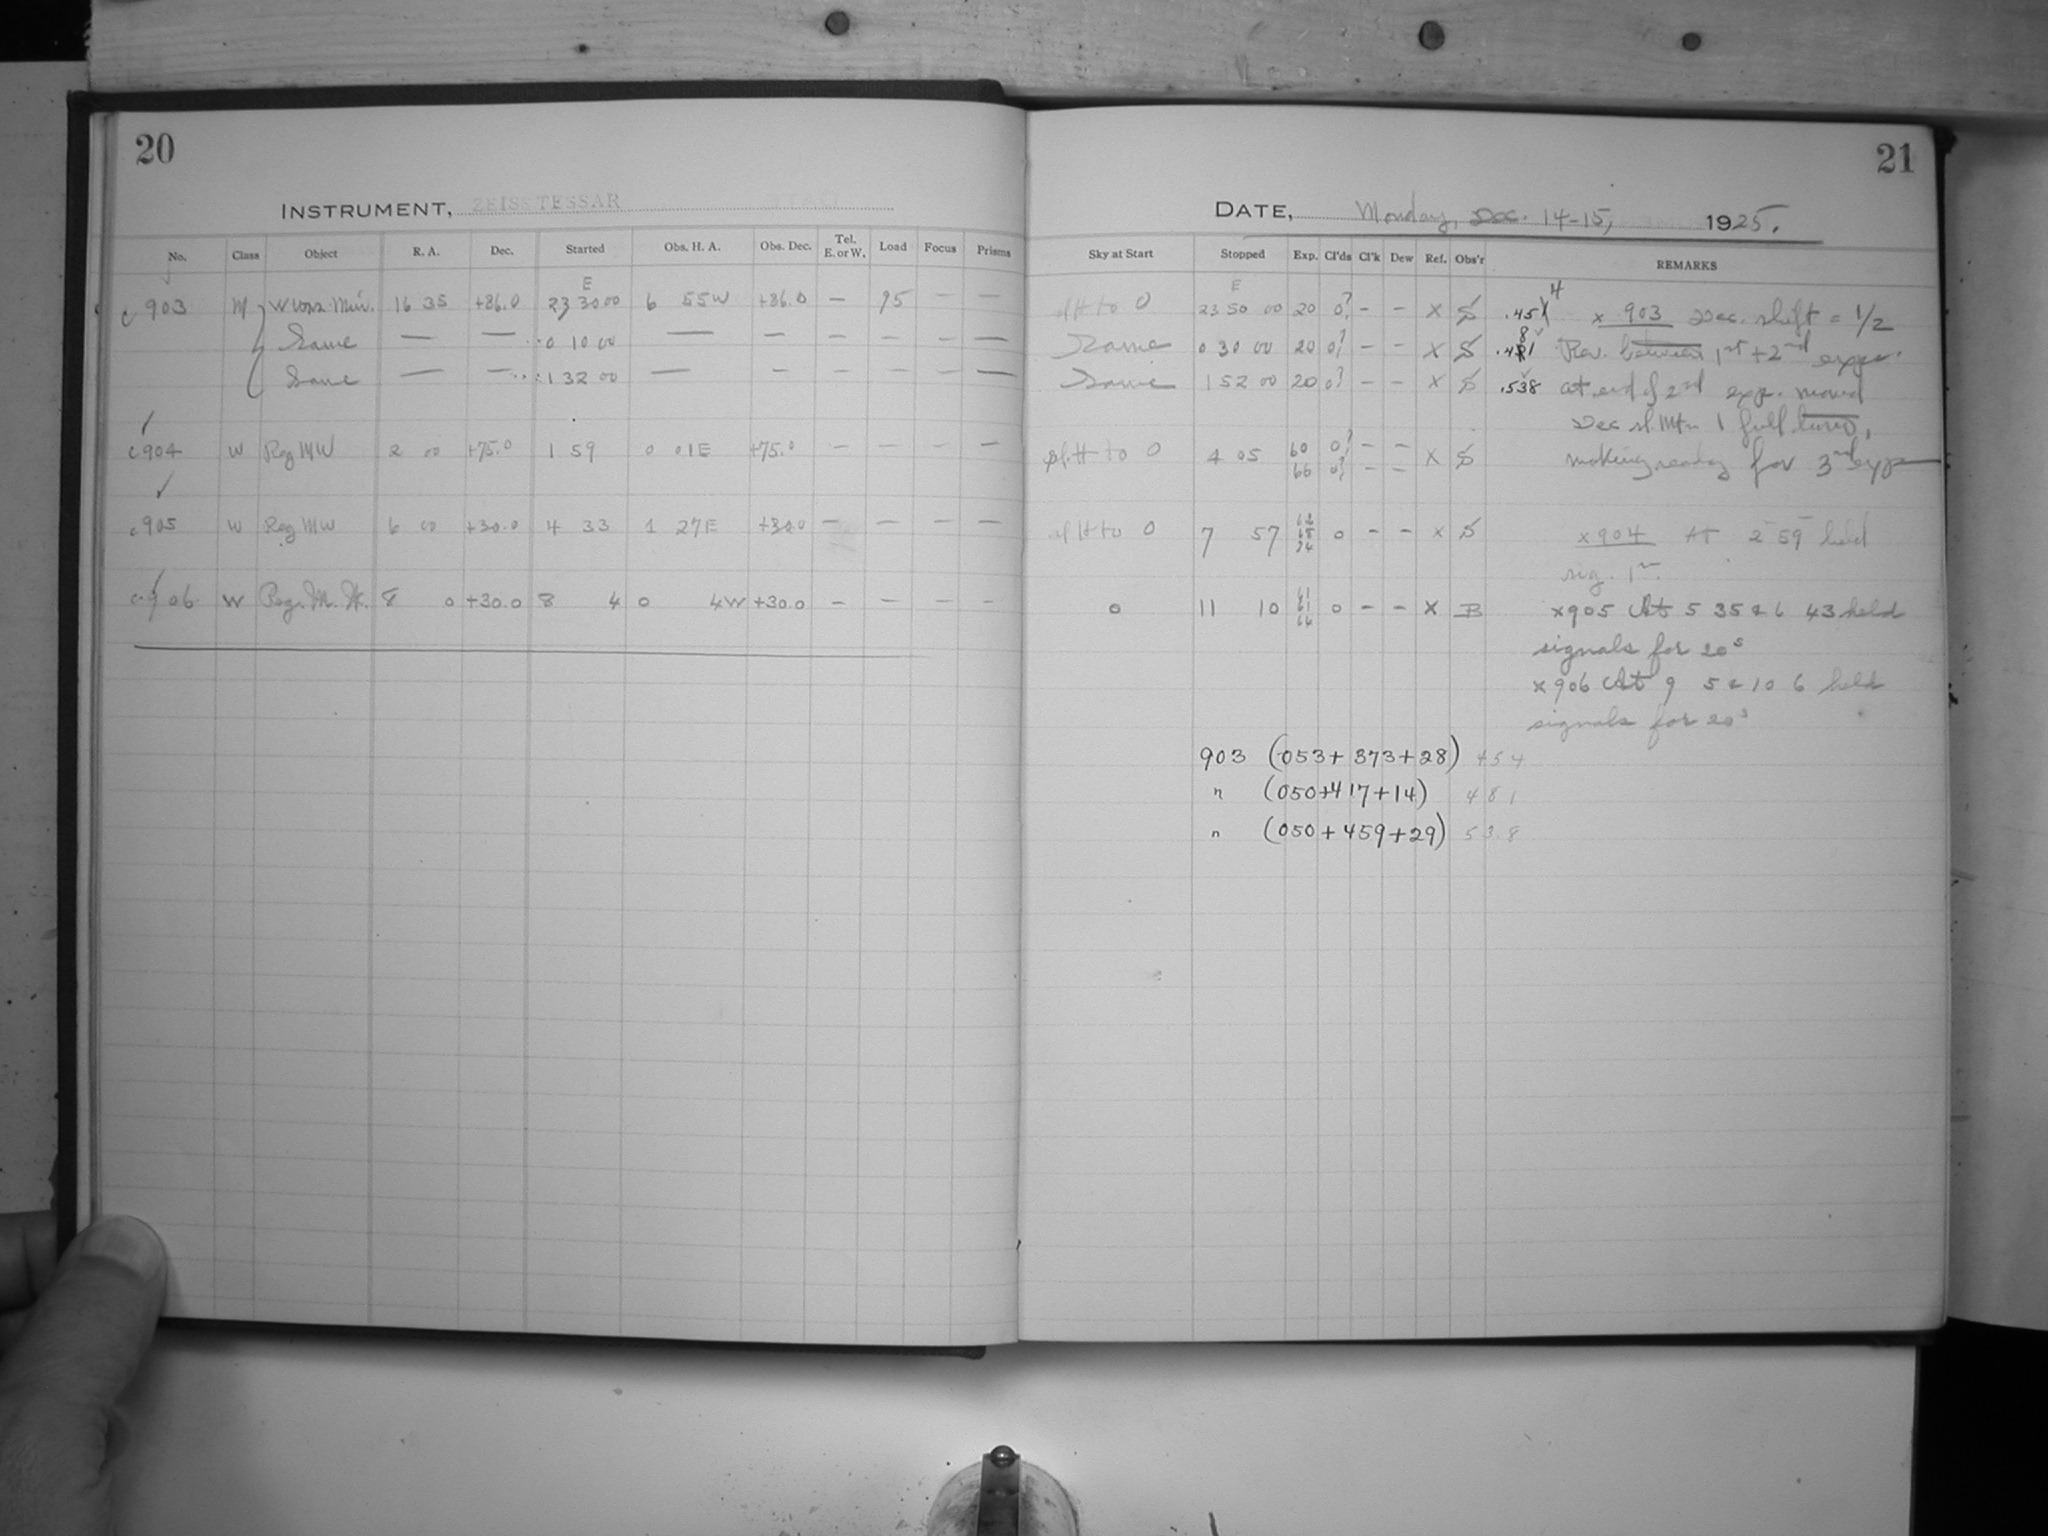 20
INSTRUMENT, ZEISS TESSAR
No. Class Object R. A. Dec. Started Obs. H. A. Obs. Dec. Tel. E. or W. Load Focus Prisms
E
c 903 M W Urs. Min. 16 35 +86.0 23 30 00 6 55 W +86.0 — 95 — —
Same — — 0 10 00 — — — — — —
Same — — 1 32 00 — — — — — —
c 904 W Reg MW 2 00 +75.0 1 59 0 01 E +75.0 — — — —
c 905 W Reg MW 6 00 +30.0 4 33 1 27 E +30.0 — — — —
c 906 W Reg. M. W. 8 0 +30.0 8 4 0 4 W +30.0 — — — —
21
DATE, Monday, Dec. 14-15, 1925.
Sky at Start Stopped Exp. Cl'ds Cl'k Dew Ref. Obs'r REMARKS
E
to 0 23 50 00 20 0? — — X S .454 x 903 Dec. shift = 1/2
Same 0 30 00 20 0? — — X S .481 Rev. between 1st + 2nd exps.
Same 1 52 00 20 0? — — X S .538 at end of 2nd exp. moved
Dec sh. 1 full turn,
to 0 4 05 60 0? — — X S making ready for 3rd exp
66 0? — —
to 0 7 57 0 — — X S x 904 At 2 59 held
sig. 1m.
0 11 10 61 61 64 0 — — X B x 905 At 5 35 & 6 43 held
signals for 20s
x 906 At 9 5 & 10 6 held
signals for 20s
903 (053 + 373 + 28) 454
" (050 + 417 + 14) 481
" (050 + 459 + 29) 538